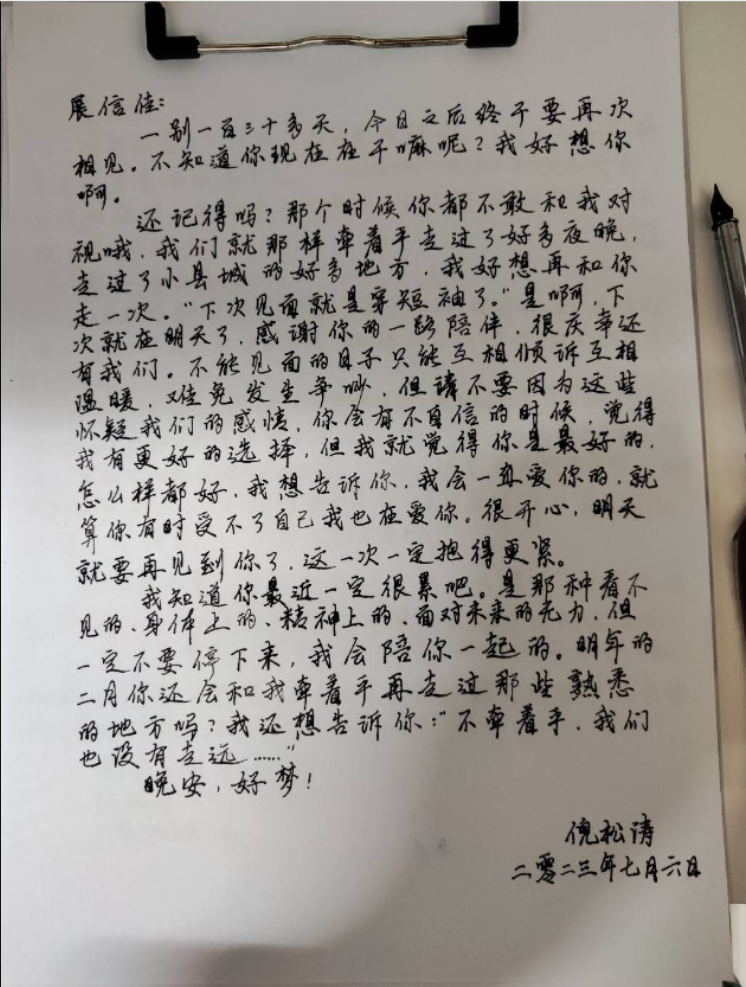 展信佳：
一别一百三十多天，今日之后终于要再次
相见。不知道你现在在干嘛呢？我好想你
啊。
还记得吗？那个时候你都不敢和我对
视哦，我们就那样牵着手走过了好多夜晚，
走过了小县城的好多地方，我好想再和你
走一次。“下次见面就是穿短袖了。”是啊，下
次就在明天了，感谢你的一路陪伴，很庆幸还
有我们。不能见面的日子只能互相倾诉互相
温暖，难免发生争吵，但请不要因为这些
怀疑我们的感情，你会有不自信的时候，觉得
我有更好的选择，但我就觉得你是最好的，
怎么样都好，我想告诉你，我会一直爱你的，就
算你有时受不了自己我也在爱你。很开心，明天
就要再见到你了，这一次一定抱得更紧。
我知道你最近一定很累吧。是那种看不
见的、身体上的、精神上的、面对未来的无力，但
一定不要停下来，我会陪你一起的。明年的
二月你还会和我牵着手再走过那些熟悉
的地方吗？我还想告诉你：“不牵着手，我们
也没有走远……”
晚安，好梦！
倪松涛
二零二三年七月六日